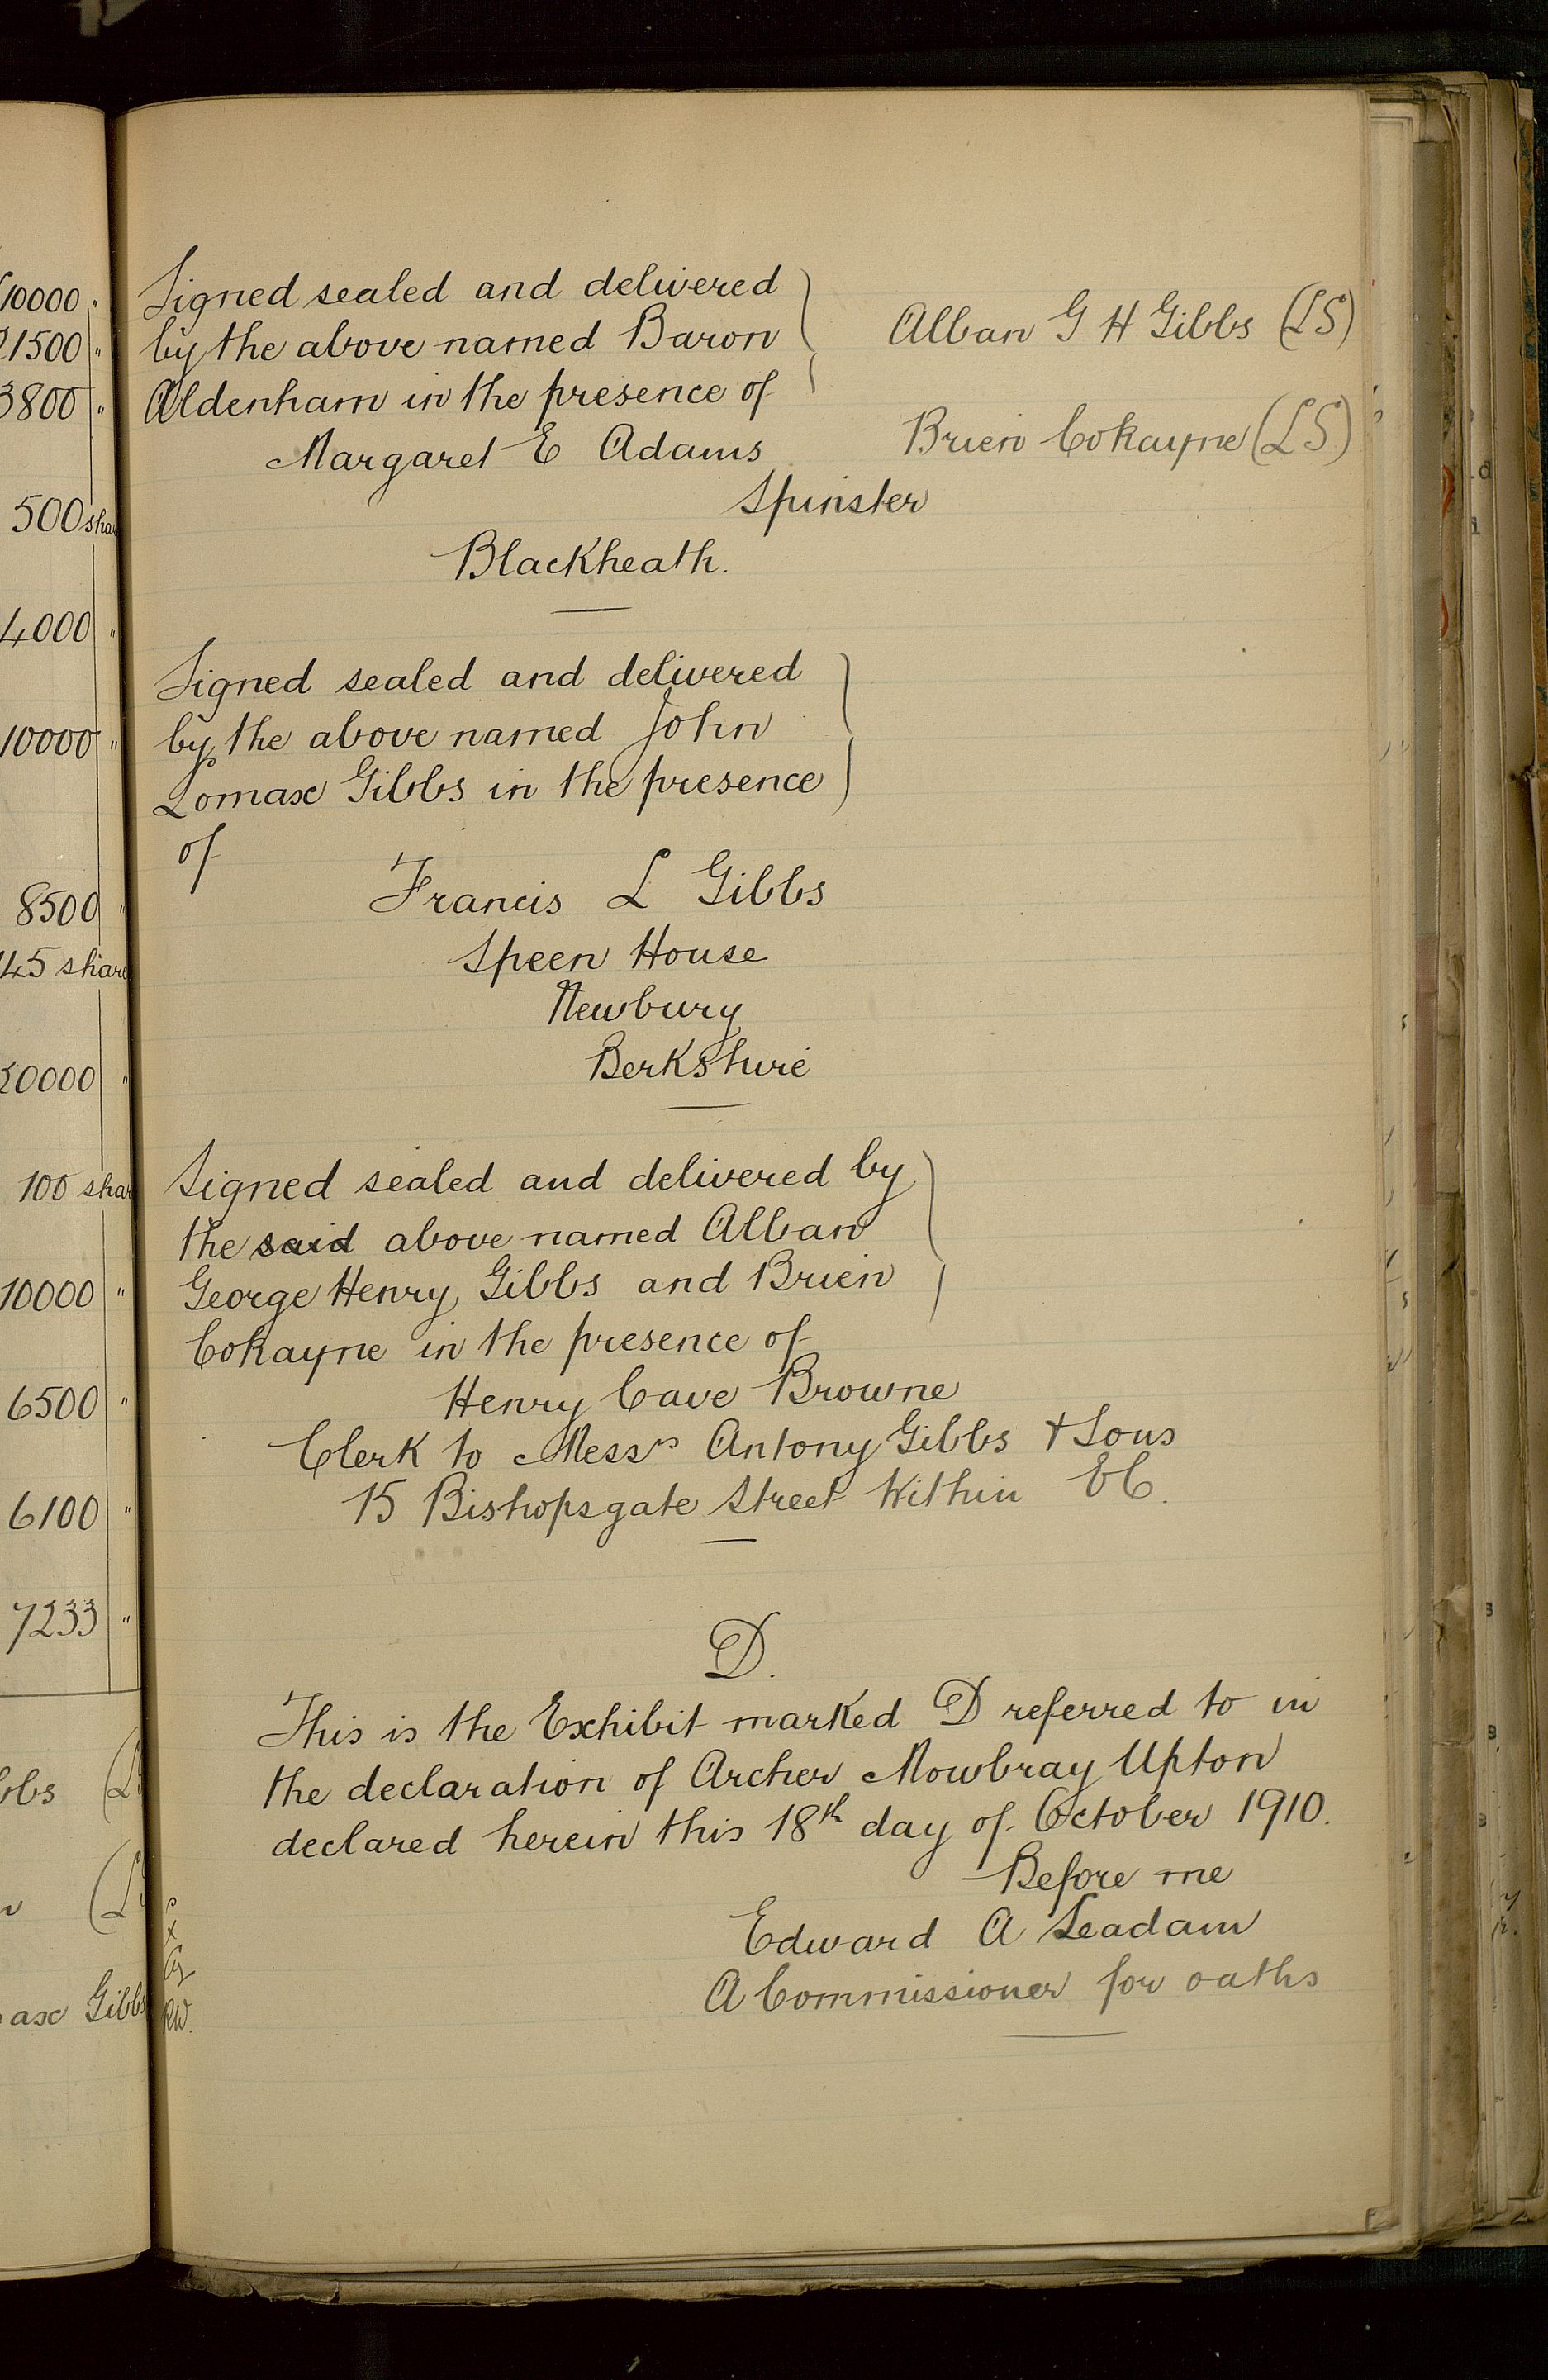 10000 "
21500 "
3800 "
500 sha
4000 "
10000 "
8500 "
45 share
20000 "
100 shar
10000 "
6500 "
6100 "
7233 "
bbs (L
(L
ax Gibbs
Signed sealed and delivered
by the above named Baron
Aldenham in the presence of
Margaret E Adams
Spinster
Blackheath.
Alban G H Gibbs (LS)
Brien Cokayne (LS)
Signed sealed and delivered
by the above named John
Lomax Gibbs in the presence
of
Francis L Gibbs
Speen House
Newbury
Berkshire
Signed sealed and delivered by
the said above named Alban
George Henry Gibbs and Brien
Cokayne in the presence of
Henry Cave Browne
Clerk to Messrs Antony Gibbs + Sons
15 Bishopsgate Street Within EC.
D.
This is the Exhibit marked D referred to in
the declaration of Archer Mowbray Upton
declared herein this 18th day of October 1910.
Before me
Edward A Leadam
A Commissioner for oaths
RW.